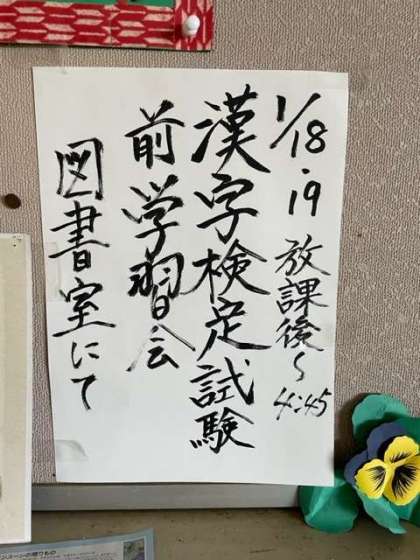 1/18・19 放課後〜4:45
漢字検定試験
前学習会
図書室にて